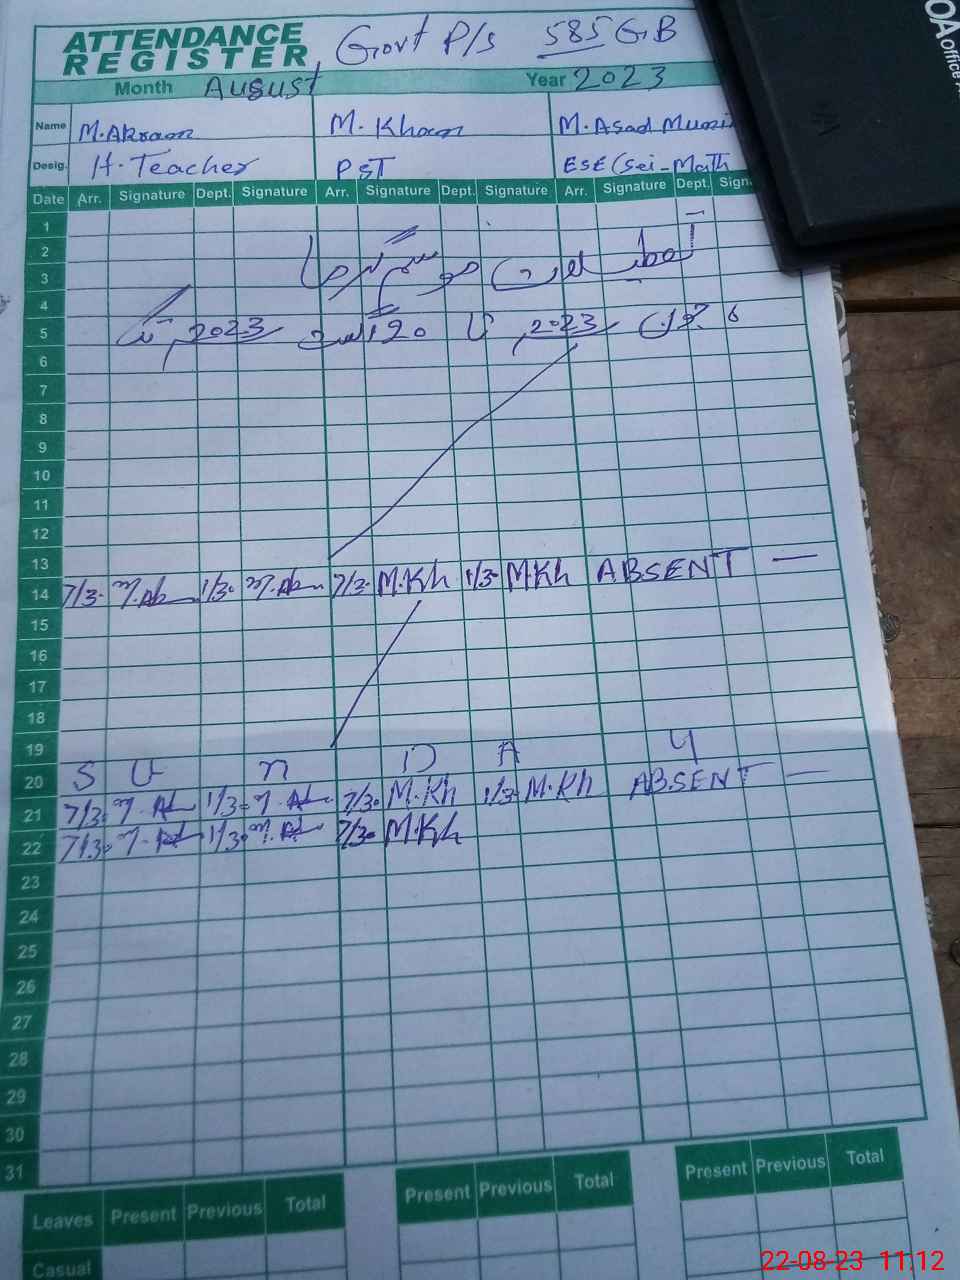 ATTENDANCE REGISTER Govt P/s 585 GB
Month August Year 2023
Name M. Akram M. Khan M. Asad
Desig. H. Teacher PST ESE (Sci-Math
Date Arr. Signature Dept. Signature Arr. Signature Dept. Signature Arr. Signature Dept. Sign
1
2
3 تعطیلات موسم گرما
4
5 6 جون 2023 تا 20 اگست 2023 تک
6
7
8
9
10
11
12
13
14 7/30 M.Ak 1/30 M.Ak 7/30 M.Kh 1/30 M.Kh ABSENT —
15
16
17
18
19
20 S U N D A Y
21 7/30 M.Ak 1/30 M.Ak 7/30 M.Kh 1/30 M.Kh ABSENT —
22 7/30 M.Ak 1/30 M.Ak 7/30 M.Kh
23
24
25
26
27
28
29
30
31
Leaves Present Previous Total Present Previous Total Present Previous Total
Casual
OA office
22-08-23 11:12